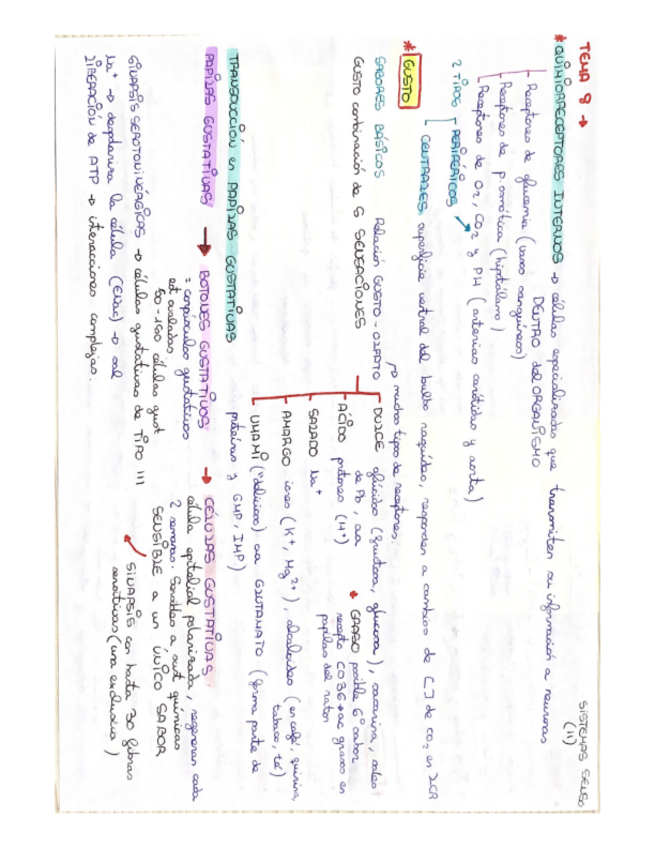 TEMA 8 →
SISTEMAS SENSO
(11)
* QUIMIORRECEPTORES INTERNOS → células especializadas que transmiten su información a neuronas
DENTRO del ORGANISMO
Receptores de glucemia (vasos sanguíneos)
Receptores de p osmótica (hipotálamo)
Receptores de O2, CO2 y PH (arterias carótidas y aorta)
2 TIPOS PERIFÉRICOS
CENTRALES, superficie ventral del bulbo raquídeo, responden a cambios de [ ] de CO2 en LCR
* GUSTO
→ muchos tipos de receptores.
SABORES BÁSICOS Relación GUSTO-OLFATO
GUSTO combinación de 5 SENSACIONES
DULCE glúcidos (fructosa, glucosa), sacarina, sales
de Pb, aa
ÁCIDO protones (H+)
SALADO Na+
AMARGO iones (K+, Mg2+), alcaloides (en café, quinina,
tabaco, té)
UMAMI ("delicioso") aa GLUTAMATO (forma parte de
proteínas y GMP, IMP)
* GRASO posible 6º sabor
recepto CD36 → ac grasos en
papilas del ratón
TRANSDUCCIÓN en PAPILAS GUSTATIVAS
PAPILAS GUSTATIVAS → BOTONES GUSTATIVOS → CÉLULAS GUSTATIVAS
= corpúsculos gustativos
est ovaladas,
50-150 células gust
célula epitelial polarizada, regeneran cada
2 semanas. Sensibles a sust químicas
SENSIBLE a un ÚNICO SABOR
SINAPSIS SEROTONINÉRGICAS → células gustativas de TIPO III
Na+ → despolariza la célula (ENaC) → sal
LIBERACIÓN de ATP → interacciones complejas.
SINAPSIS con hasta 30 fibras
sensitivas (una exclusiva)